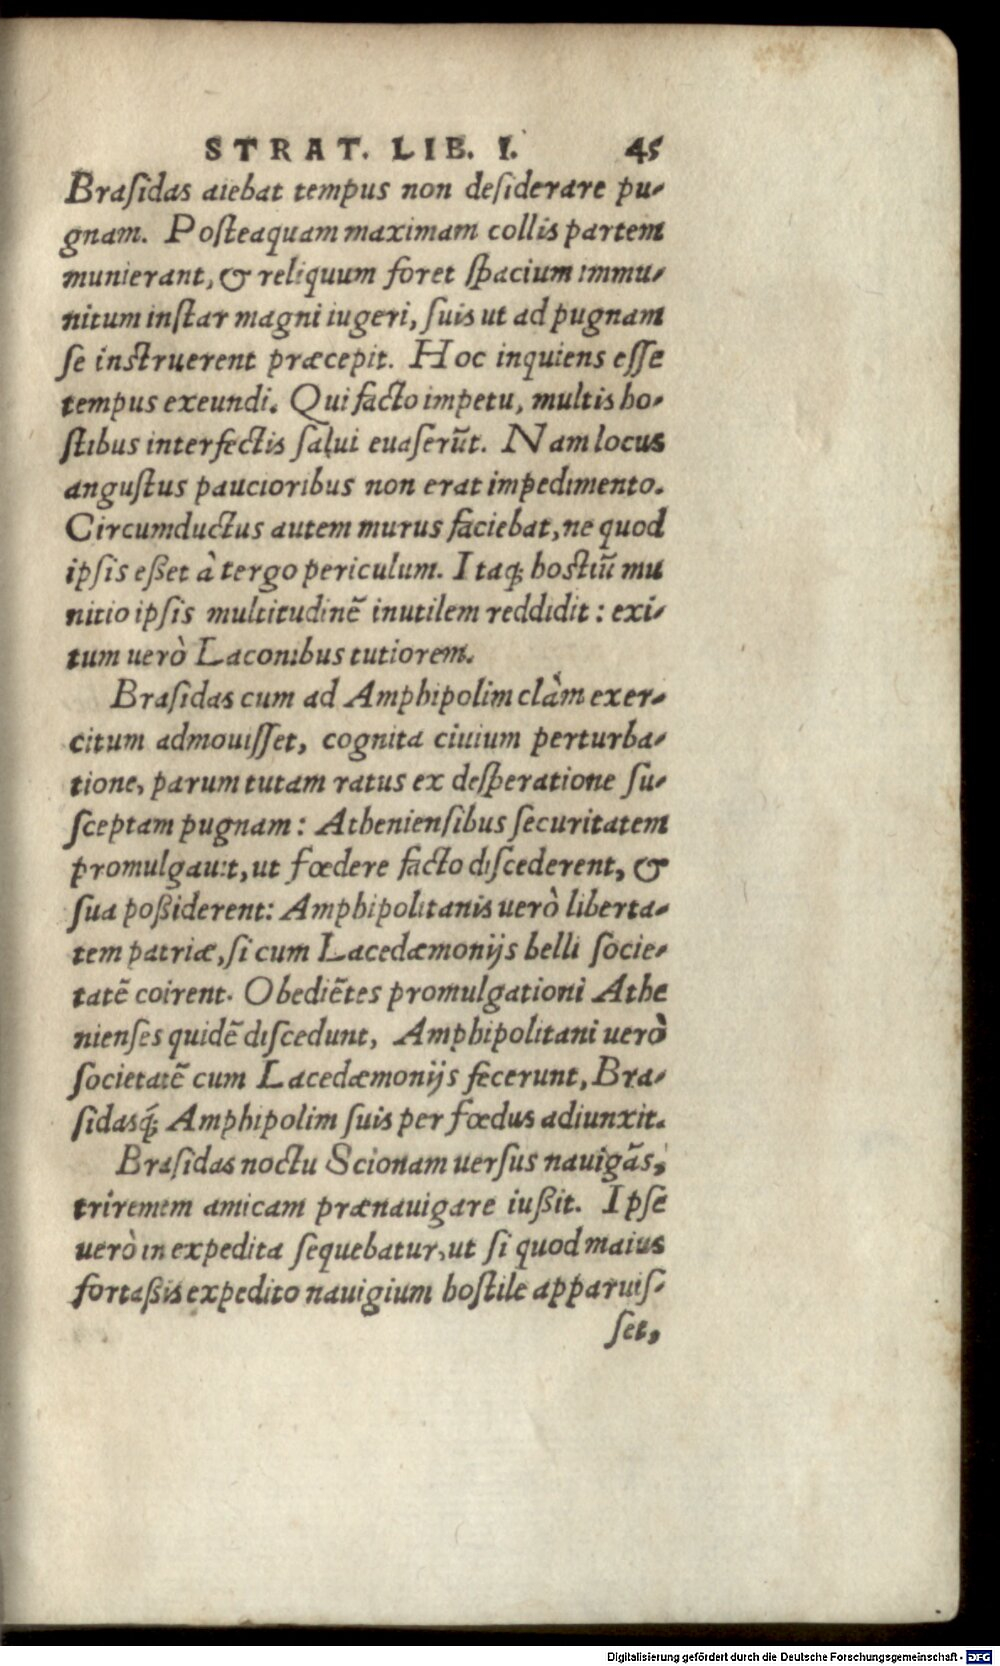 STRAT. LIB. I. 45
Braſidas aiebat tempus non deſiderare pu-
gnam. Poſteaquam maximam collis partem
munierant, & reliquum foret ſpacium immu-
nitum inſtar magni iugeri, ſuis ut ad pugnam
ſe inſtruerent præcepit. Hoc inquiens eſſe
tempus exeundi. Qui facto impetu, multis ho-
ſtibus interfectis ſalui euaſerūt. Nam locus
anguſtus paucioribus non erat impedimento.
Circumductus autem murus faciebat, ne quod
ipſis eßet à tergo periculum. Itaq; hoſtiū mu
nitio ipſis multitudinē inutilem reddidit: exi-
tum uerò Laconibus tutiorem.
Braſidas cum ad Amphipolim clàm exer-
citum admouiſſet, cognita ciuium perturba-
tione, parum tutam ratus ex deſperatione ſu-
ſceptam pugnam: Athenienſibus ſecuritatem
promulgauit, ut fœdere facto diſcederent, &
ſua poßiderent: Amphipolitanis uerò liberta-
tem patriæ, ſi cum Lacedæmonijs belli ſocie-
tatē coirent. Obediētes promulgationi Athe
nienſes quidē diſcedunt, Amphipolitani uerò
ſocietatē cum Lacedæmonijs fecerunt, Bra-
ſidasq́; Amphipolim ſuis per fœdus adiunxit.
Braſidas noctu Scionam uerſus nauigãs,
triremem amicam prænauigare iußit. Ipſe
uerò in expedita ſequebatur, ut ſi quod maius
fortaßis expedito nauigium hoſtile apparuiſ-
ſet,
Digitalisierung gefördert durch die Deutsche Forschungsgemeinschaft - DFG